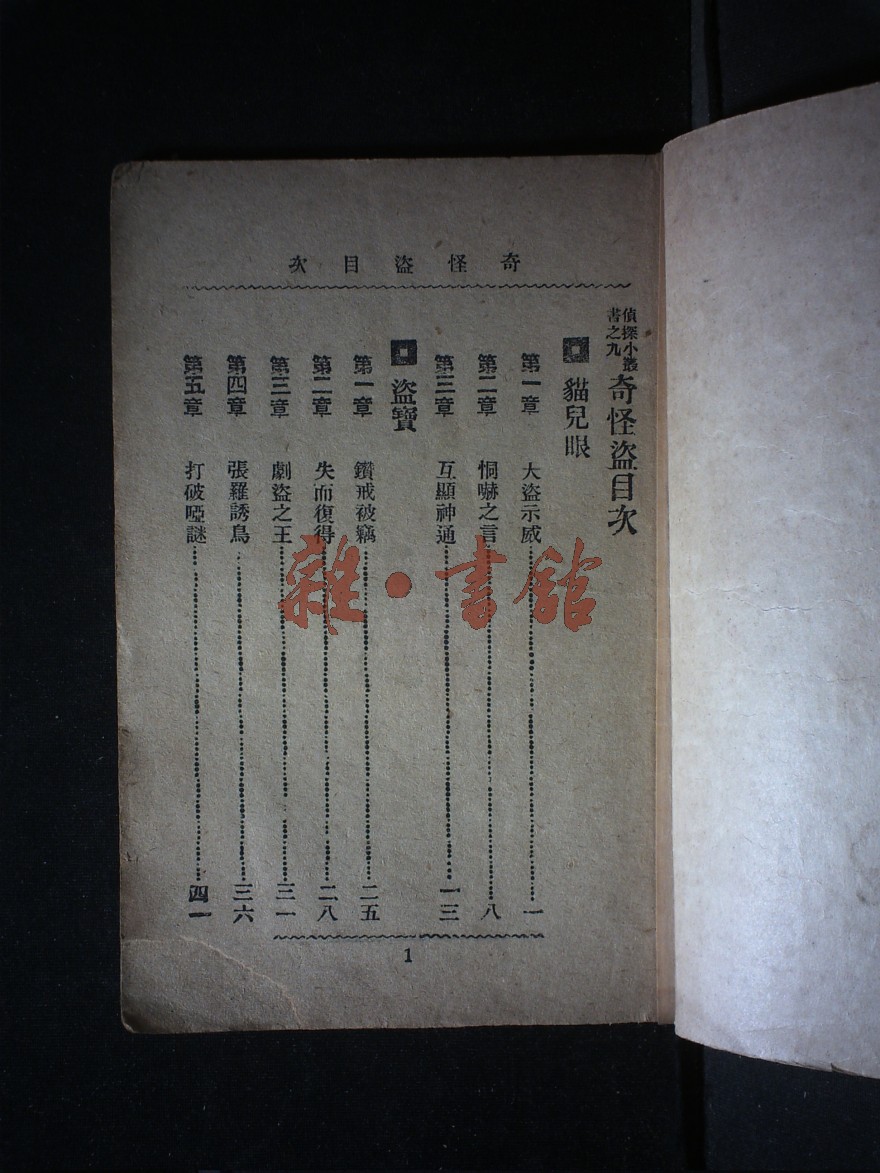 奇怪盜目次
偵探小叢書之九 奇怪盜目次
貓兒眼
第一章 大盜示威 一
第二章 恫嚇之言 八
第三章 互顯神通 一三
盜寶
第一章 鑽戒被竊 二五
第二章 失而復得 二八
第三章 劇盜之王 三一
第四章 張羅誘鳥 三六
第五章 打破啞謎 四一
1
雜·書館